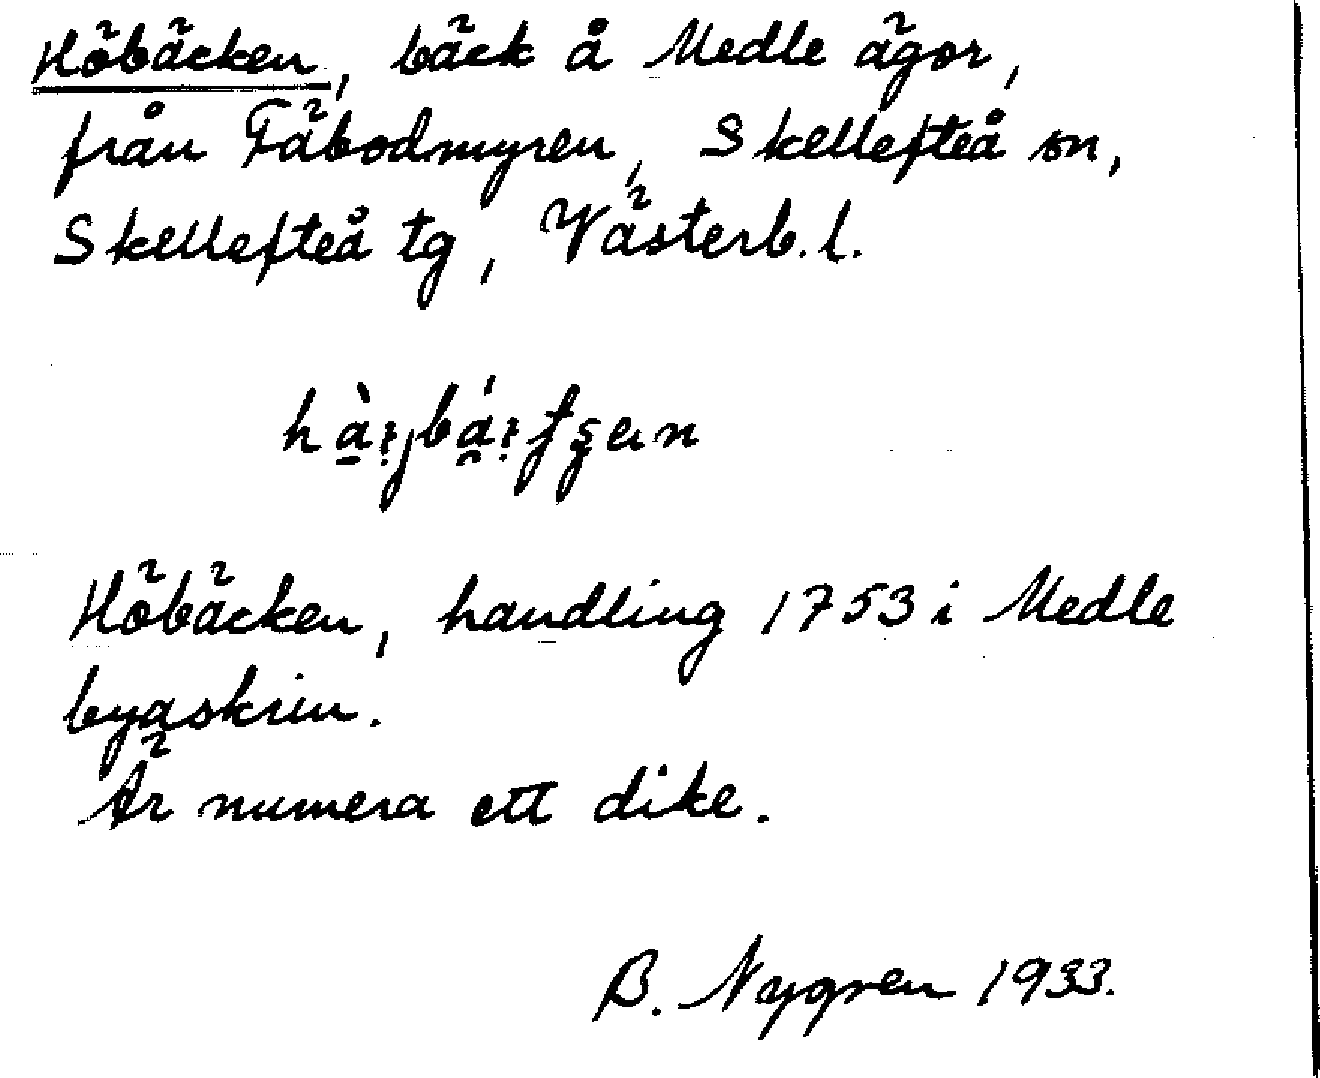 Höbäcken, bäck å Medle ägor,
från Fäbodmyren, Skellefteå sn,
Skellefteå tg, Västerb. l.
Höbäcken, handling 1753 i Medle
byaskrin.
Är numera ett dike.
B. Nygren 1933.